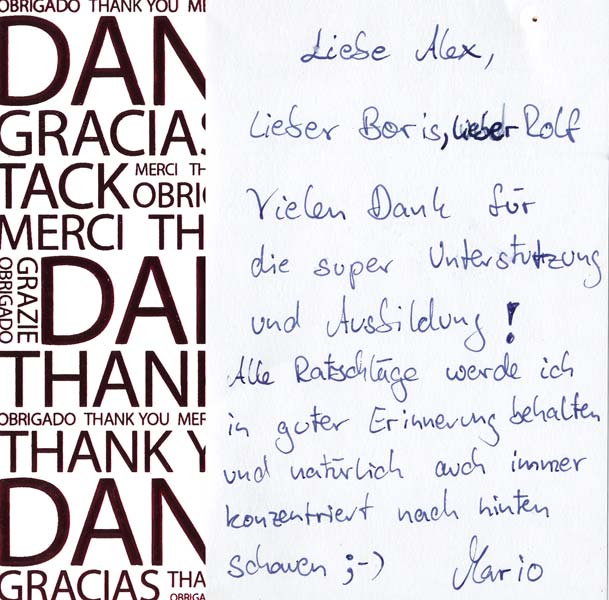 OBRIGADO THANK YOU ME
DAN
GRACIAS
TACK MERCI TH
OBRI
MERCI TH
OBRIGADO
GRAZIE
DAN
THANK
OBRIGADO THANK YOU MER
THANK Y
DAN
GRACIAS THA
OBRIGA
Liebe Alex,
lieber Boris, lieber Rolf
Vielen Dank für
die super Unterstutzung
und Ausbildung!
Alle Ratschläge werde ich
in guter Erinnerung behalten
und natürlich auch immer
konzentriert nach hinten
schauen ;-) Mario